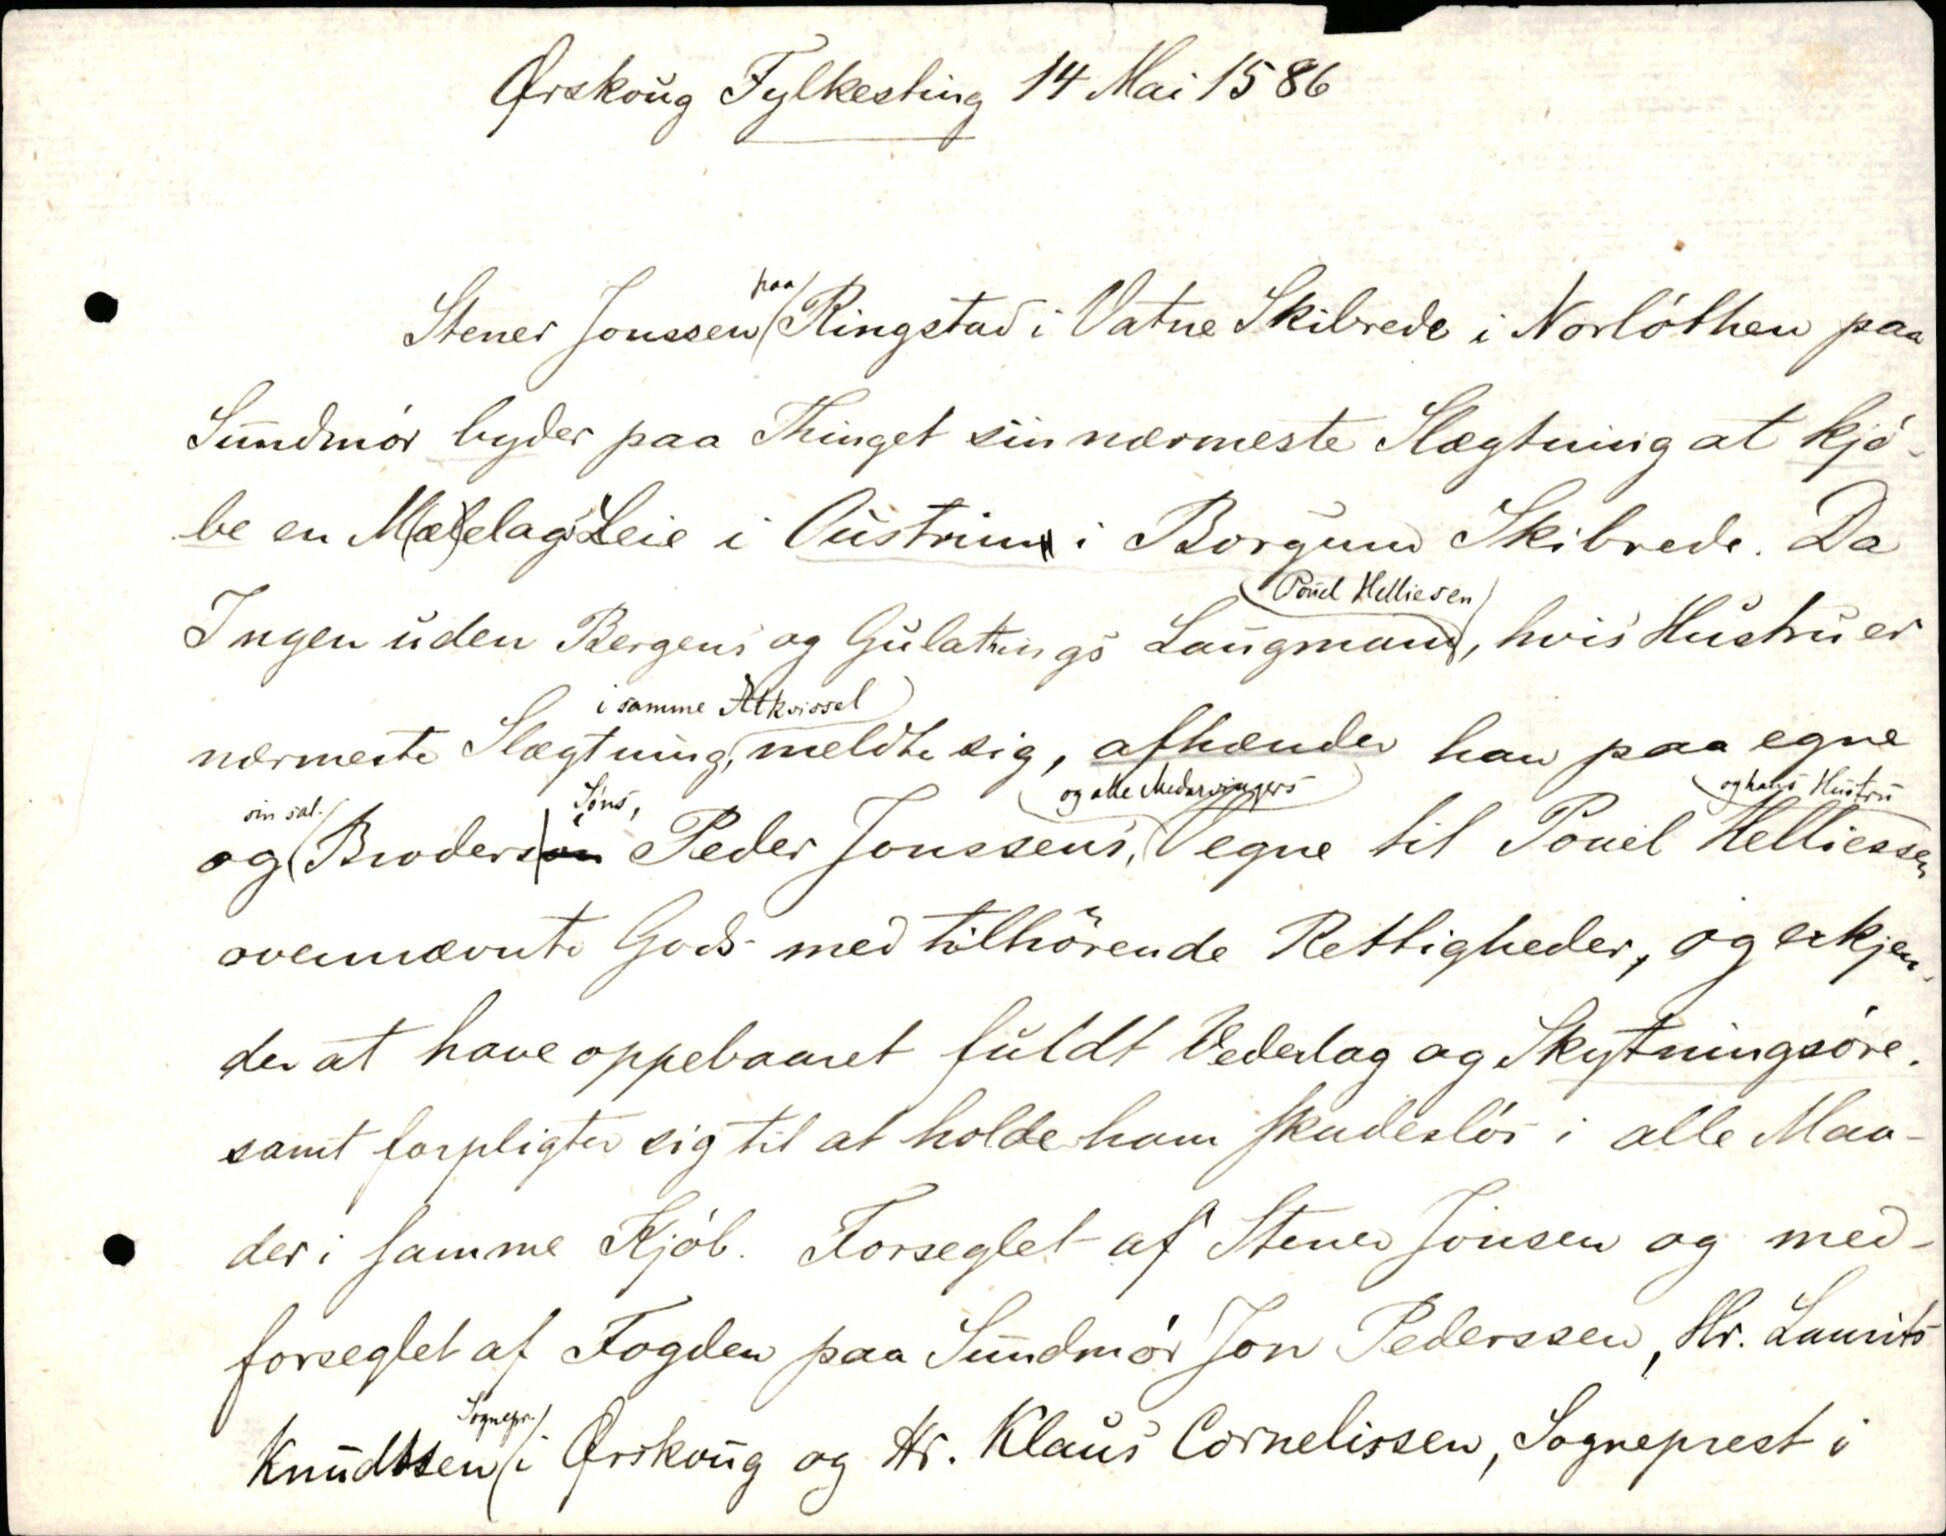 Ørskoug Fylkesting 14 Mai 1586
Stener Jonssen paa Ringstad i Vatne Skibrede i Norlöthen paa
Sundmör byder paa Thinget sin nærmeste Slægtning at kjö-
be en M(æ)lelags Leie i Oustrim i Borgund Skibrede. Da
Ingen uden Bergens og Gulathings Laugmand Pouel Helliesen, hvis Hustru er
nærmeste Slægtning i samme Ätkvissel, meldte sig, afhænder han paa egne
og sin sal. Broders Söns, Peder Jonssens, og alle Medarvingers Vegne til Pouel Helliessen og hans Hustru
ovennævnte Gods med tilhörende Rettigheder, og erkjen-
der at have oppebaaret fuldt Vederlag og Skytningsöre.
samt forpligter sig til at holde ham skadeslös i alle Maa-
der i samme Kjöb. Forseglet af Stener Jonsen og med-
forseglet af Fogden paa Sundmör Jon Pederssen, Hr. Laurits
Knudssen Sognepr. i Ørskoug og Hr. Klaus Cornelissen, Sogneprest i